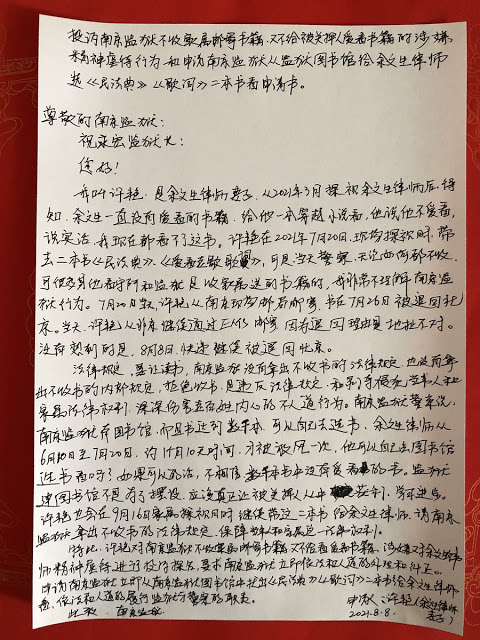 投诉南京监狱不收家属邮寄书籍,又不给被关押人爱看书籍的涉嫌
精神虐待行为 和申请南京监狱从监狱图书馆给余文生律师
选《民法典》《歌词》二本书看申请书。
尊敬的南京监狱:
祝永宏监狱长:
您好!
我叫许艳,是余文生律师妻子,从2021年3月探视余文生律师后,得
知,余文生一直没有爱看的书籍,给他一本穿越小说看,他说,他不爱看,
说实话,我现在都看不了这书。许艳在2021年7月20日,现场探视时,带
去二本书《民法典》、《爱看至歌歌》,可是当天警察,无论如何都不收,
可很多其他看守所和监狱是收家属送的书籍的,我非常不理解南京监
狱行为。7月20日当天,许艳从南京现场邮局邮寄,书在7月26日被退回北
京。当天,许艳从北京继续通过EMS邮寄,因为退回理由是地址不对。
没有想到的是,8月8日,快递继续被退回北京。
法律规定,要让读书,南京监狱没有拿出不收书的法律规定,也没有拿
出不收书的内部规定,拒绝收书,是违反法律规定,和剥夺侵犯当事人和
家属法律权利,深深伤害老百姓内心的不人道行为。南京监狱警察说,
南京监狱有图书馆,而且书达到数千本,可以自己去选书,余文生律师从
6月10日至7月20日,约1个月10天时间,才被放风一次,他可以自己去图书馆
选书看吗?如果可以的话,不相信数千本书中没有爱看的书,监狱
建图书馆不是为了摆设,应该真正让被关押人从中获利,学习进步。
许艳也会在9月16日家属探视日时继续带这二本书给余文生律师,请南京
监狱拿出不收书的法律规定,保障当事人和家属这一法律权利。
特此,许艳对南京监狱不收家属邮寄书籍,又不给爱看书籍,涉嫌对余文生律
师精神虐待进行投诉控告,要求南京监狱立即依法和人道的处理和纠正。
申请南京监狱立即从南京监狱图书馆中选出《民法典》《歌词》二本书给余文生律师
看,依法和人道的履行监狱与警察的职责。
此致:南京监狱
申请人:许艳(余文生律师
妻子)
2021.8.8.